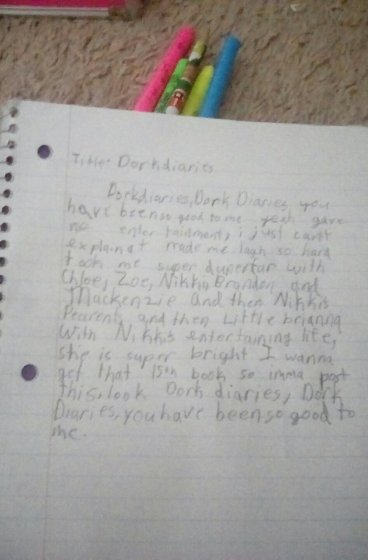 Title: Dorkdiaries
Dorkdiaries, Dork Diaries, you
have been so good to me yeah gave
me entertainment, i just can't
explain it made me laugh so hard
took me super dupertar with
Chloe, Zoe, Nikki, Brandon and
Mackenzie and then Nikki's
Pearents and then Little brianna
With Nikki's entertaining life,
she is super bright I wanna
get that 15th book so imma post
this, look Dork diaries, Dork
Diaries, you have been so good to
me.